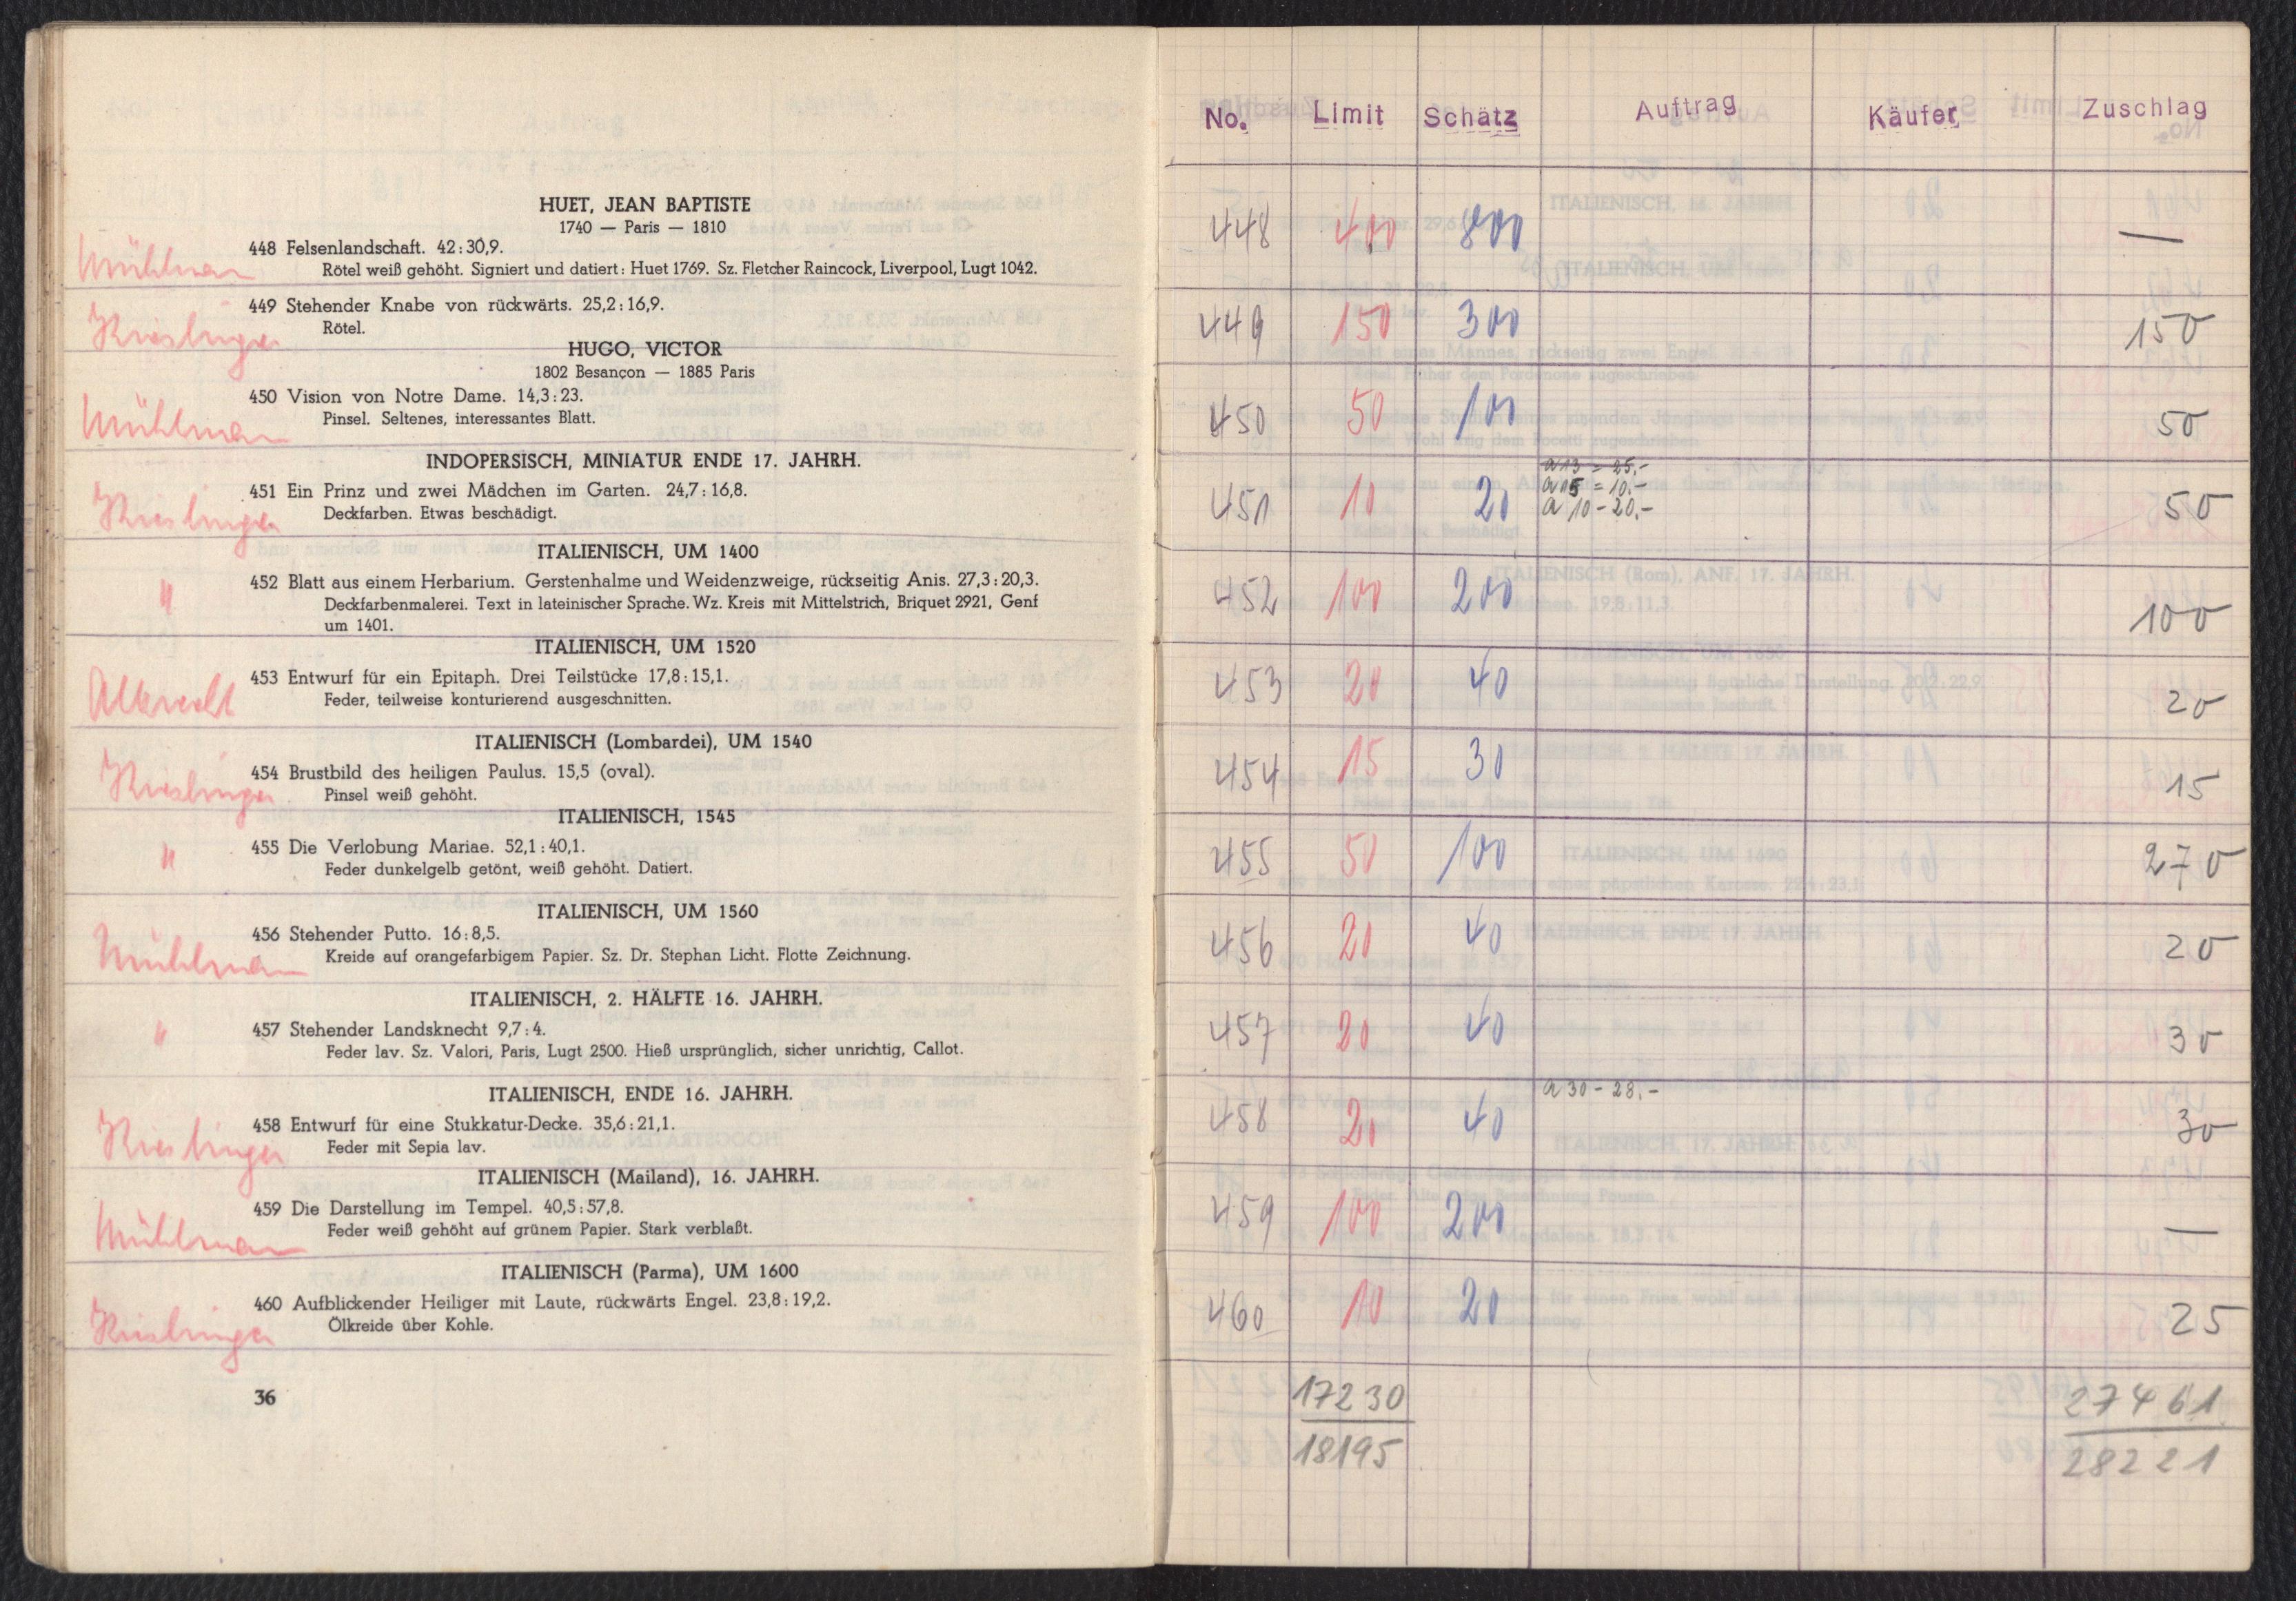 HUET, JEAN BAPTISTE
1740 — Paris — 1810
448 Felsenlandschaft. 42:30,9.
Rötel weiß gehöht. Signiert und datiert: Huet 1769. Sz. Fletcher Raincock, Liverpool, Lugt 1042.
Mühlman
449 Stehender Knabe von rückwärts. 25,2:16,9.
Rötel.
Kieslinger
HUGO, VICTOR
1802 Besançon — 1885 Paris
450 Vision von Notre Dame. 14,3:23.
Pinsel. Seltenes, interessantes Blatt.
Mühlman
INDOPERSISCH, MINIATUR ENDE 17. JAHRH.
451 Ein Prinz und zwei Mädchen im Garten. 24,7:16,8.
Deckfarben. Etwas beschädigt.
Kieslinger
ITALIENISCH, UM 1400
452 Blatt aus einem Herbarium. Gerstenhalme und Weidenzweige, rückseitig Anis. 27,3:20,3.
Deckfarbenmalerei. Text in lateinischer Sprache. Wz. Kreis mit Mittelstrich, Briquet 2921, Genf
um 1401.
"
ITALIENISCH, UM 1520
453 Entwurf für ein Epitaph. Drei Teilstücke 17,8:15,1.
Feder, teilweise konturierend ausgeschnitten.
Albrecht
ITALIENISCH (Lombardei), UM 1540
454 Brustbild des heiligen Paulus. 15,5 (oval).
Pinsel weiß gehöht.
Kieslinger
ITALIENISCH, 1545
455 Die Verlobung Mariae. 52,1:40,1.
Feder dunkelgelb getönt, weiß gehöht. Datiert.
"
ITALIENISCH, UM 1560
456 Stehender Putto. 16:8,5.
Kreide auf orangefarbigem Papier. Sz. Dr. Stephan Licht. Flotte Zeichnung.
Mühlman
ITALIENISCH, 2. HÄLFTE 16. JAHRH.
457 Stehender Landsknecht 9,7:4.
Feder lav. Sz. Valori, Paris, Lugt 2500. Hieß ursprünglich, sicher unrichtig, Callot.
"
ITALIENISCH, ENDE 16. JAHRH.
458 Entwurf für eine Stukkatur-Decke. 35,6:21,1.
Feder mit Sepia lav.
Kieslinger
ITALIENISCH (Mailand), 16. JAHRH.
459 Die Darstellung im Tempel. 40,5:57,8.
Feder weiß gehöht auf grünem Papier. Stark verblaßt.
Mühlman
ITALIENISCH (Parma), UM 1600
460 Aufblickender Heiliger mit Laute, rückwärts Engel. 23,8:19,2.
Ölkreide über Kohle.
Kieslinger
36
No. Limit Schätz Auftrag Käufer Zuschlag
448 400 800 —
449 150 300 150
450 50 100 50
a 13 = 25.-
a 15 = 10.-
a 10 - 20.-
451 10 20 50
452 100 200 100
453 20 40 20
454 15 30 15
455 50 100 270
456 20 40 20
457 20 40 30
a 30 - 28.-
458 20 40 30
459 100 200 —
460 10 20 25
17230 27461
18195 28221